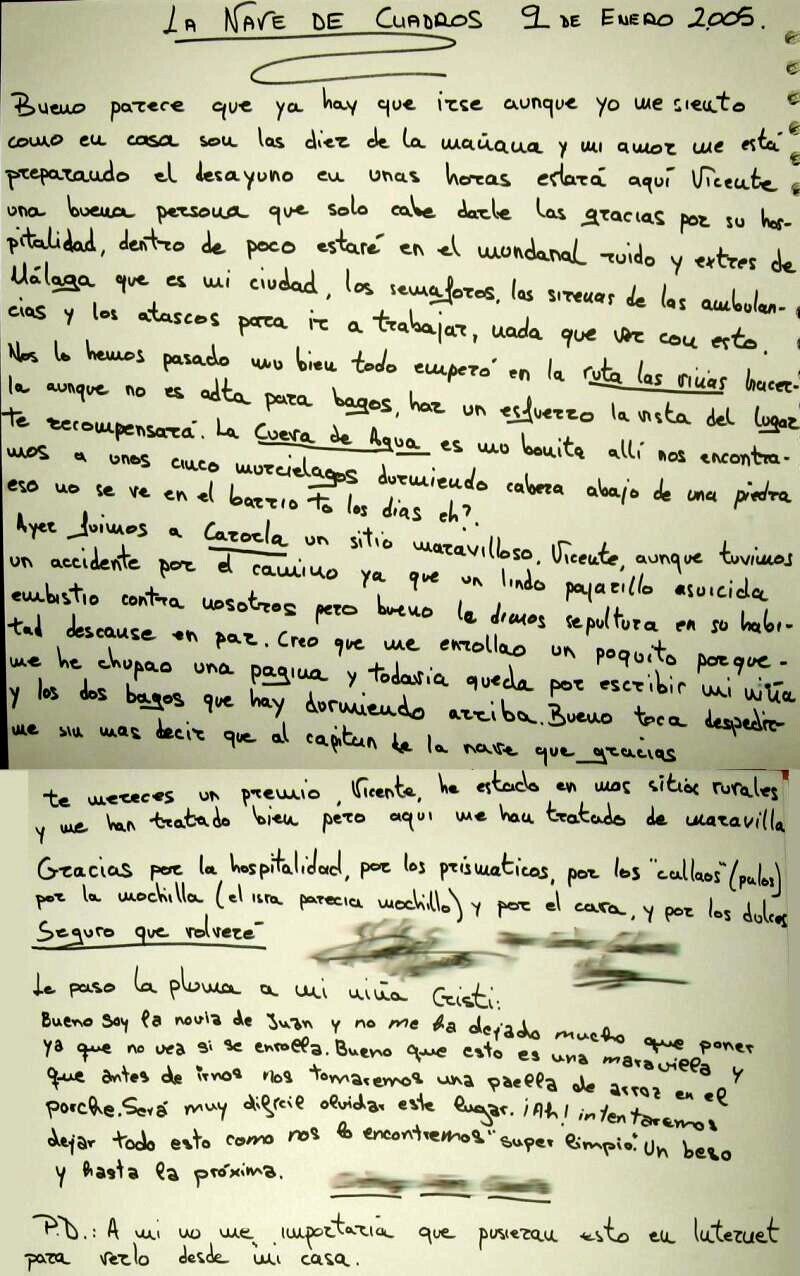 LA NAVE DE CUADROS 9 DE ENERO 2,006.
Bueno parece que ya hay que irse aunque yo me siento
como en casa son las diez de la mañana y mi amor me está
preparando el desayuno en unas horas estará aquí Vicente
una buena persona que solo cabe darle las gracias por su hos-
pitalidad, dentro de poco estaré en el mondanal ruido y extres de
Málaga que es mi ciudad, los semaforos, las sirenas de las ambulan-
cias y los atascos para ir a trabajar, nada que ver con esto.
Nos lo hemos pasado muo bien todo emperó en la ruta las minas hacer-
la aunque no es adta para bagos, haz un esfuerzo la vista del lugar
te recompensará. La Cueva de Agua es muo bonita allí nos encontra-
mos a unos cinco murcielagos durmiendo cabeza abajo de una piedra
eso no se ve en el barrio to los días eh?
Ayer fuimos a Cazorla un sitio maravilloso. Vicente, aunque tuvimos
un accidente por el camino ya que un lindo pajarillo asuicida
embistio contra nosotros pero bueno le dimos sepultura en su habi-
tad descanse en paz. Creo que me enrollao un poquito porque -
me he chupao una pagina y todavia queda por escribir mi niña
y los dos bagos que hay durmiendo arriba. Bueno toca despedir-
me sin mas decir que al capitan de la nave que gracias
te mereces un premio, Vicente, he estado en mos sitios rurales
y me han tratado bien pero aqui me han tratado de maravilla
Gracias por la hospitalidad, por los prismaticos, por los "callaos" (palos)
por la mochilla (el isra parecia mochillo) y por el casa, y por los dulces
Seguro que volveré
Le paso la pluma a mi niña Cristi:
Bueno Soy la novia de Juan y no me ha dejado mucho que poner
ya que no vea si se enrolla. Bueno que esto es una maravilla y
que antes de irnos nos tomaremos una paella de arroz en el
porche. Será muy dificil olvidar este lugar. ¡Ah! intentaremos
dejar todo esto como nos lo encontremos "super limpio". Un beso
y hasta la próxima.
P.D.: A mi no me importaria que pusieran esto en Internet
para verlo desde mi casa.